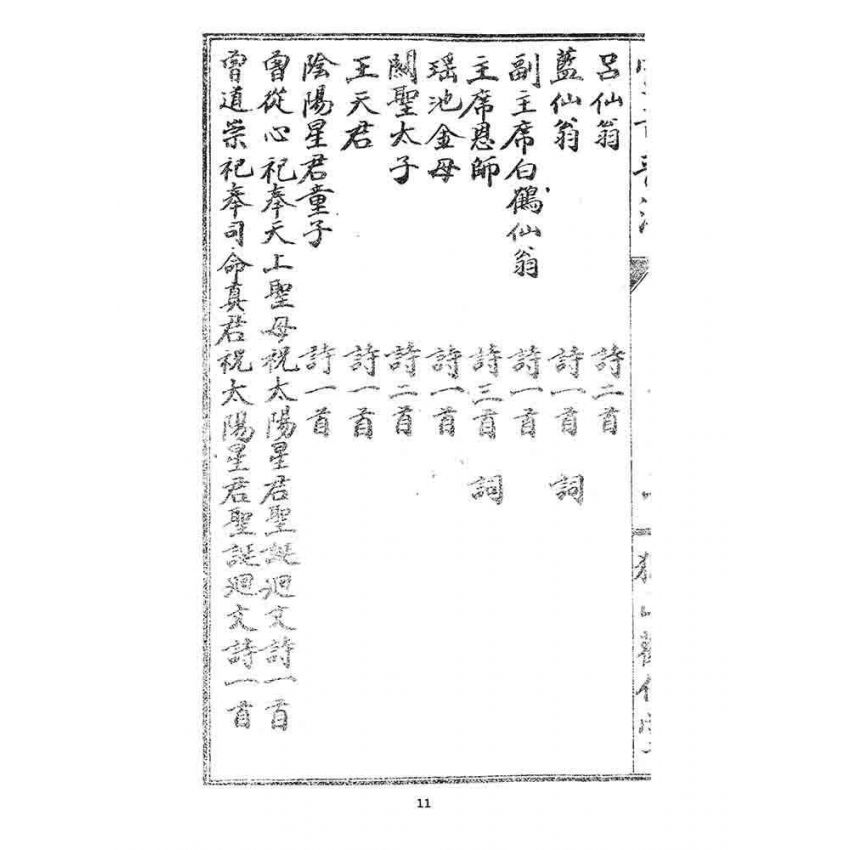 呂仙翁 詩二首
藍仙翁 詩一首 詞
副主席白鶴仙翁 詩一首
主席恩師 詩三首 詞
瑶池金母 詩一首
關聖太子 詩二首
王天君 詩一首
陰陽星君童子 詩一首
曾從心祀奉天上聖母祝太陽星君聖誕迴文詩一首
曾道崇祀奉司命真君祝太陽星君聖誕迴文詩一首
11